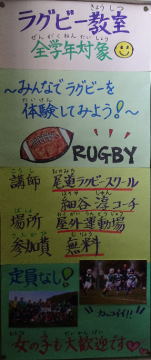 ラグビー教室
全学年対象
～みんなでラグビーを
体験してみよう!～
RUGBY
講師 尾東ラグビースクール
細谷 淳コーチ
場所 屋外運動場
参加費 無料
定員なし!
カッコイイ!!
女の子も大歓迎です♡